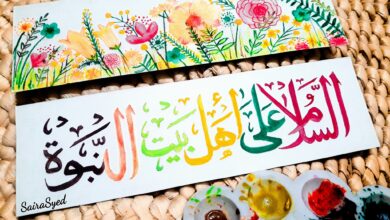 السَّلامُ عَلىٰ أهْل بَيت النَّبوَة
SairaSyed